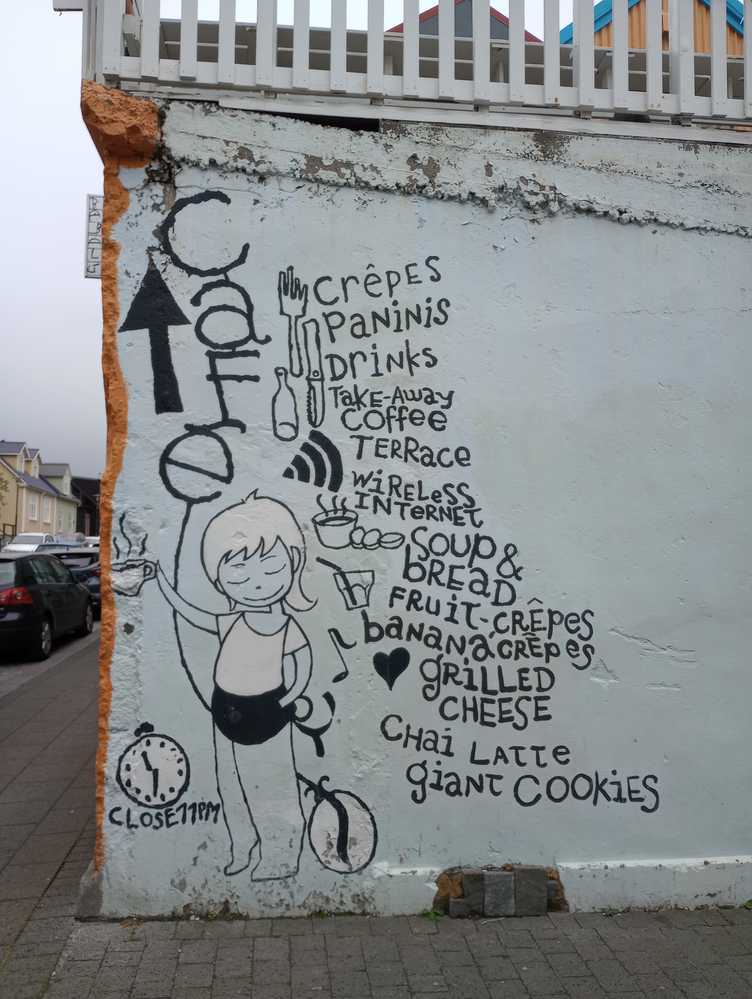 Café
CrêPES
PaNiNiS
DriNks
TaKE-AWay
COFFEE
TERRace
WiRELeSS
INTerNET
SOUP &
bREaD
FRUiT-CRÊPES
baNaNa CRÊPES
gRiLLED
CHEESE
CHai LaTTe
giaNT COOKiES
CLOSE 11PM